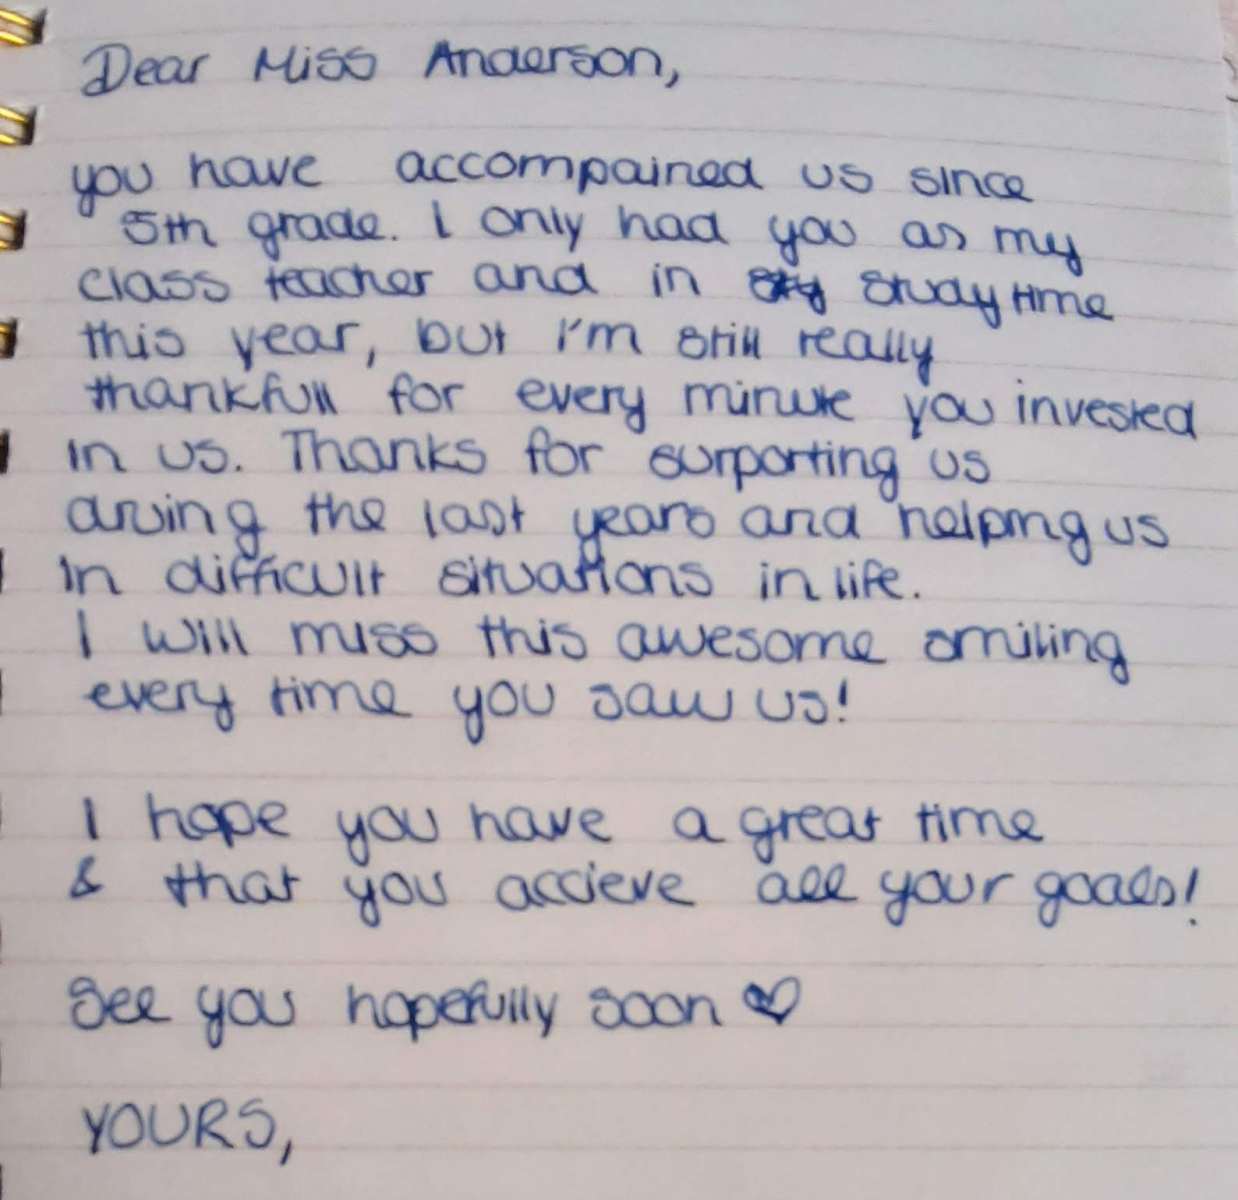 Dear Miss Anderson,
you have accompained us since
5th grade. I only had you as my
class teacher and in study time
this year, but I'm still really
thankfull for every minute you invested
in us. Thanks for surporting us
during the last years and helping us
in difficult situations in life.
I will miss this awesome smiling
every time you saw us!
I hope you have a great time
& that you accieve all your goals!
See you hopefully soon ♡
YOURS,